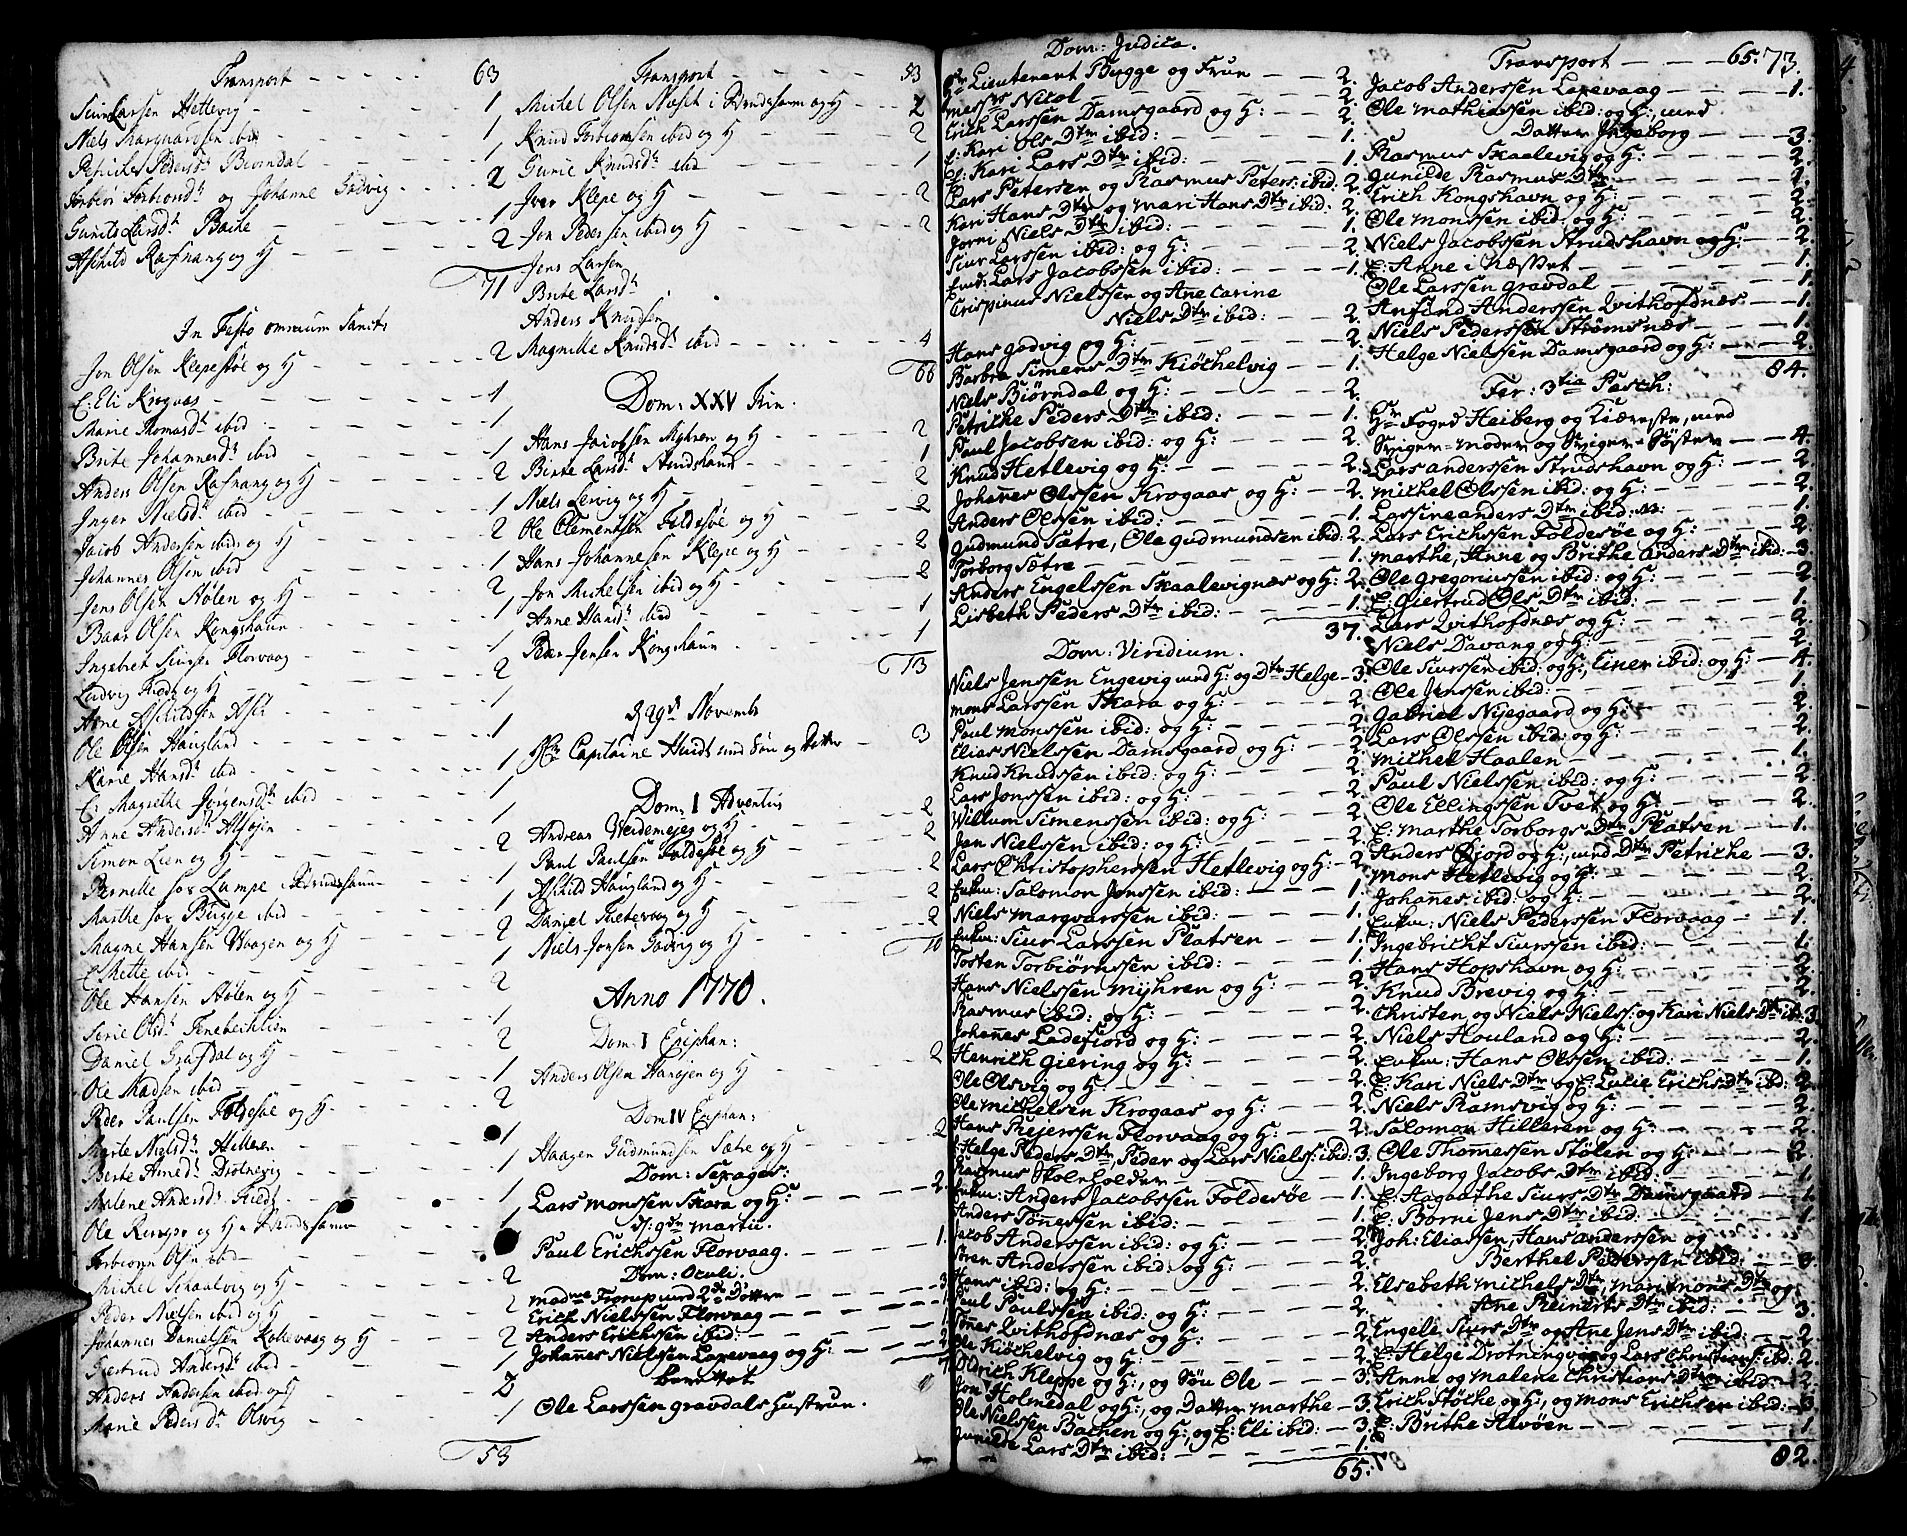 Transport - - - - - 63
Siur Larsen Hettevig - - - 1
Niels Marqvardsen ibid - - - 1
Petriche Pedersd. Biørndal - - - 1
Torbiør Torbiornsd. og Johanne Godvig - - - 2
Gunild Larsd. Bache - - - 1
Aschild Rafnang og H - - - 2
71
In Festo omnium Sanct.
Jon Olsen Klepestøe og H - - - 2
E: Eli Krogaas - - - 1
Marie Thomasd. ibid - - - 1
Brite Johannesd. ibid - - - 1
Anders Olsen Rafnang og H - - - 2
Inger Nielsd. ibid - - - 1
Jacob Andersen ibid og H - - - 2
Johannes Olsen ibid - - - 1
Jens Olsen Stølen og H - - - 2
Baar Olsen Kongshaun - - - 1
Ingebret Siursen Florvaag - - - 1
Ludvig Tieds og H - - - 2
Arne Aschildsen Aschi - - - 1
Ole Olsen Haugland - - - 1
Karie Hansd. ibid - - - 1
E: Magrethe Jørgensd. ibid - - - 1
Anne Andersd. Alsøjen - - - 1
Simon Lien og H - - - 2
Pernille hos Lampe Strudshaun - - - 1
Marthe hos Bugge ibid - - - 1
Magne Hansen Waagen og H - - - 2
E: Mette ibid - - - 1
Ole Hansen Stølen og H - - - 2
Serie Olsd. - - - 1
Daniel Grafdal og H - - - 2
Ole Madsen ibid - - - 1
Peder Paulsen Foldesøe og H - - - 2
Marte Nielsd. Hilleren - - - 1
Berte Arned. Drotnevig - - - 1
Malene Andersd. Tieds - - - 1
Ole og H. Strudshavn
Torbiorn Olsen ibid
Michel Schaalvig og H - - - 2
Peder Nielsen ibid og H - - - 2
Johannes Danielsen Kollevaag og H - - - 2
Giertrud Andersd. ibid - - - 1
Anders Andersen ibid og H - - - 2
Marie Pedersd. Olsvig - - - 1
53
Transport - - - - 53
Michel Olsen Næset i Strudshavn og H - - - 2
Knud Torbiornsen ibid og H - - - 2
Gunie Knudsd. ibid - - - 1
Iver Klepe og H - - - 2
Jon Pedersen ibid og H - - - 2
Jens Larsen
Brite Larsd.
Anders Knudsen
Magnille Knudsd. ibid - - - 4
66
Dom: XXV Trin:
Hans Jacobsen Myhren og H - - - 2
Birte Larsd. Strudshaun - - - 1
Niels Leivig og H - - - 2
Ole Clementsen Foldesøe og H - - - 2
Hans Johannesen Klepe og H - - - 2
Jon Michelsen ibid og H - - - 2
Anne Hansd. ibid - - - 1
Peder Jensen Kongshaun - - - 1
13
d. 29d Novembr
Hr. Capitaine Hiidt med Søn og Datter - 3
Dom: I Adventus
Andreas Weidemejeg og H - - - 2
Paul Paulsen Foldesøe og H - - - 2
Aschild Haugland og H - - - 2
Daniel Tietevog og H - - - 2
Niels Jonsen Godvig og H - - - 2
10
Anno 1770.
Dom: I Epiphan:
Anders Olsen Hanøjen og H - - - 2
Dom IV Epiphan:
Haagen Gudmundsen Sætre og H - - - 2
Dom: Sexages:
Lars Monssen Skara og H: - - - 2.
d: 9de Martii.
Paul Erichssen Florvaag. - - - 1.
Dom: Oculi.
Madme Trorup med 2de Døttre - - - 3
Erich Nielssen Florvaag
Anders Erichssen ibid:
Johannes Nielssen Lapevaag og H: - - - 2
7
berettet
Ole Larssen Gravdals Hustrue.
Dom: Judica.
Hr Lieutenant Bugge og Frue - - 2.
Massrs Nicol - - - 2.
Erich Larssen Damsgaard og H: - - 2.
E: Kari Ols Dtr ibid: - - - 1.
E: Kari Lars Dtr ibid: - - - 1.
Lars Petersen og Rasmus Peters: ibid: 2.
Kari Hans Dtr og Mari Hans Dtr ibid. 2.
Jorri Niels Dtr ibid: - - - 1.
Siur Larssen ibid: og H: - - - 2.
Enk: Lars Jacobssen ibid: - - - 1.
Crispinus Nielssen og Ane Carine
Niels Dtr ibid: - - 2.
Hans Godvig og H: - - - 2.
Barbra Simens Dtr Kiøchelvig - - 1.
Niels Biørndal og H: - - - 2.
Petriche Peders Dtr ibid: - - - 1.
Paul Jacobsen ibid: og H: - - - 2.
Knud Hetlevig og H: - - - 2.
Johannes Olssen Krogaas og H: - - 2.
Anders Olssen ibid: - - - 1.
Gudmund Sætre, Ole Gudmundsen ibid: 2.
Torborg Sætre - - - 1.
Anders Engelssen Skaalevignæs og H: 2.
Lisbeth Peders Dtr ibid: - - - 1.
37.
Dom: Viridium.
Niels Jenssen Engevig med H: og Dtr Helge - 3.
Mons Larssen Skara og H: - - - 2.
Paul Monssen ibid: og H: - - - 2.
Elias Nielssen Damsgaard og H: - - 2.
Knud Knudssen ibid: og H: - - - 2.
Lars Jonssen ibid: og H: - - - 2.
Willum Simenssen ibid: og H: - - 2.
Jan Nielssen ibid: og H: - - - 2.
Lars Christopherssen Hetlevig og H: - 2.
Enkm: Salomon Jonssen ibid: - - - 1.
Niels Marqvarssen ibid: - - - 1.
Enkm: Siur Larssen Platsen - - - 1.
Tosten Torbiørnssen ibid: - - - 1.
Hans Nielssen Myhren og H: - - - 2.
Rasmus ibid: og H: - - - 2.
Johannes Ladefiord og H: - - - 2.
Henrich Giering og H: - - - 2.
Ole Olsvig og H: - - - 2.
Ole Michelsen Krogaas og H: - - 2.
Hans Rejerssen Florvaag og H: - - 2.
Helge Peders Dtr, Peder og Lars Niels: ibid: 3.
Rasmus Skoleholder - - - 1.
Enkm: Anders Jacobssen Foldesøe - - 1.
Anders Tønessen ibid: - - - 1.
Jacob Anderssen ibid: og H: - - 2.
Søren Anderssen ibid: og H: - - 2.
Hans ibid: og H: - - - 2.
Paul Paulssen ibid: og H: - - - 2.
Tønes Qvithofdnæs og H: - - - 2.
Ole Kiøchelvig og H: - - - 2.
Olrich Kleppe og H:, og Søn Ole - - 3.
Jon Holmedal og H:, og Datter Marthe - 3.
Ole Nielssen Bachen og H:, og E: Eli ibid: - 3.
Gunilde Lars Dtr ibid: - - - 1.
65.
Transport - - - 65. 73.
Jacob Anderssen Lepevaag - - - 1.
Ole Mathiassen ibid: og H:, med
Datter Ingeborg - - - 3.
Rasmus Skaalevig og H: - - - 2.
Gunilde Rasmus Dtr - - - 1.
Erich Kongshavn og H: - - - 2.
Ole Monssen ibid: og H: - - - 2.
Niels Jacobssen Strudshavn og H: - - 2.
E: Anne i Næsset - - - 1.
Ole Larssen Gravdal - - - 1.
Anfind Anderssen Qvithofdnæs - - 1.
Niels Pederssen Strømsnæs - - - 1.
Helge Nielssen Damsgaard og H: - - 2.
84.
Fer: 3tia Pasch:
Hr Foged Heiberg og Kiæreste, med
Sviger-Moder og Sviger-Søster - - 4.
Lars Anderssen Strudshavn og H: - - 2.
Michel Olssen ibid: og H: - - - 2.
Lars Erichssen Foldesøe og H: - - 2.
Marthe, Anne og Brithe Anders Dtr ibid: - 3.
Ole Gregoriussen ibid: og H: - - 2.
E: Giertrud Ols Dtr ibid: - - - 1.
Lars Qvithofdnæs og H: - - - 2.
Niels Davang og H: - - - 2.
Ole Siurssen ibid: og H:, Einer ibid: og H: - 4.
Ole Jenssen ibid: - - - 1.
Gabriel Nyegaard og H: - - - 2.
Lars Olssen ibid: og H: - - - 2.
Michel Haalen - - - 1.
Paul Nielssen ibid: og H: - - - 2.
Ole Ellingssen Tvet og H: - - - 2.
E: Marthe Torborgs Dtr Platsen - - 1.
Anders Giord og H:, med Dtr Petriche - 3.
Mons Hetlevig og H: - - - 2.
Johannes ibid: og H: - - - 2.
Enkm: Niels Pederssen Florvaag - - 1.
Ingebricht Siurssen ibid: - - - 1.
Hans Hopshavn og H: - - - 2.
Knud Brevig og H: - - - 2.
Christen og Niels Niels: og Kari Niels Dtr ib: 3.
Niels Houland og H: - - - 2.
Enkm: Hans Olssen ibid: - - - 1.
E: Kari Niels Dtr og E: Lucie Erichs Dtr ibid: 2.
Niels Ramsvig og H: - - - 2.
Salomon Hilleren og H: - - - 2.
Ole Thomessen Stølen og H: - - - 2
Ingeborg Jacobs Dtr ibid: - - - 1.
E: Aagaathe Siurs Dtr Damsgaard - - 1.
E: Borni Jens Dtr ibid: - - - 1.
Joh: Eliassen, Hans Anderssen og
Berthel Pederssen ibid: - - 3
Elsebeth Michels Dtr, Mari Mons Dtr og
Ane Reinerts Dtr ibid: - - - 3.
Engele Siurs Dtr og Ane Jens Dtr ibid: - 2.
E: Helge Drotningvig og Lars Christians: ibid: 2.
Anne og Malene Christians Dtr ibid: - 2.
Erich Støche og H:, og Mons Erichsen ibid: - 3.
E: Brithe Alvøen - - - 1.
82.